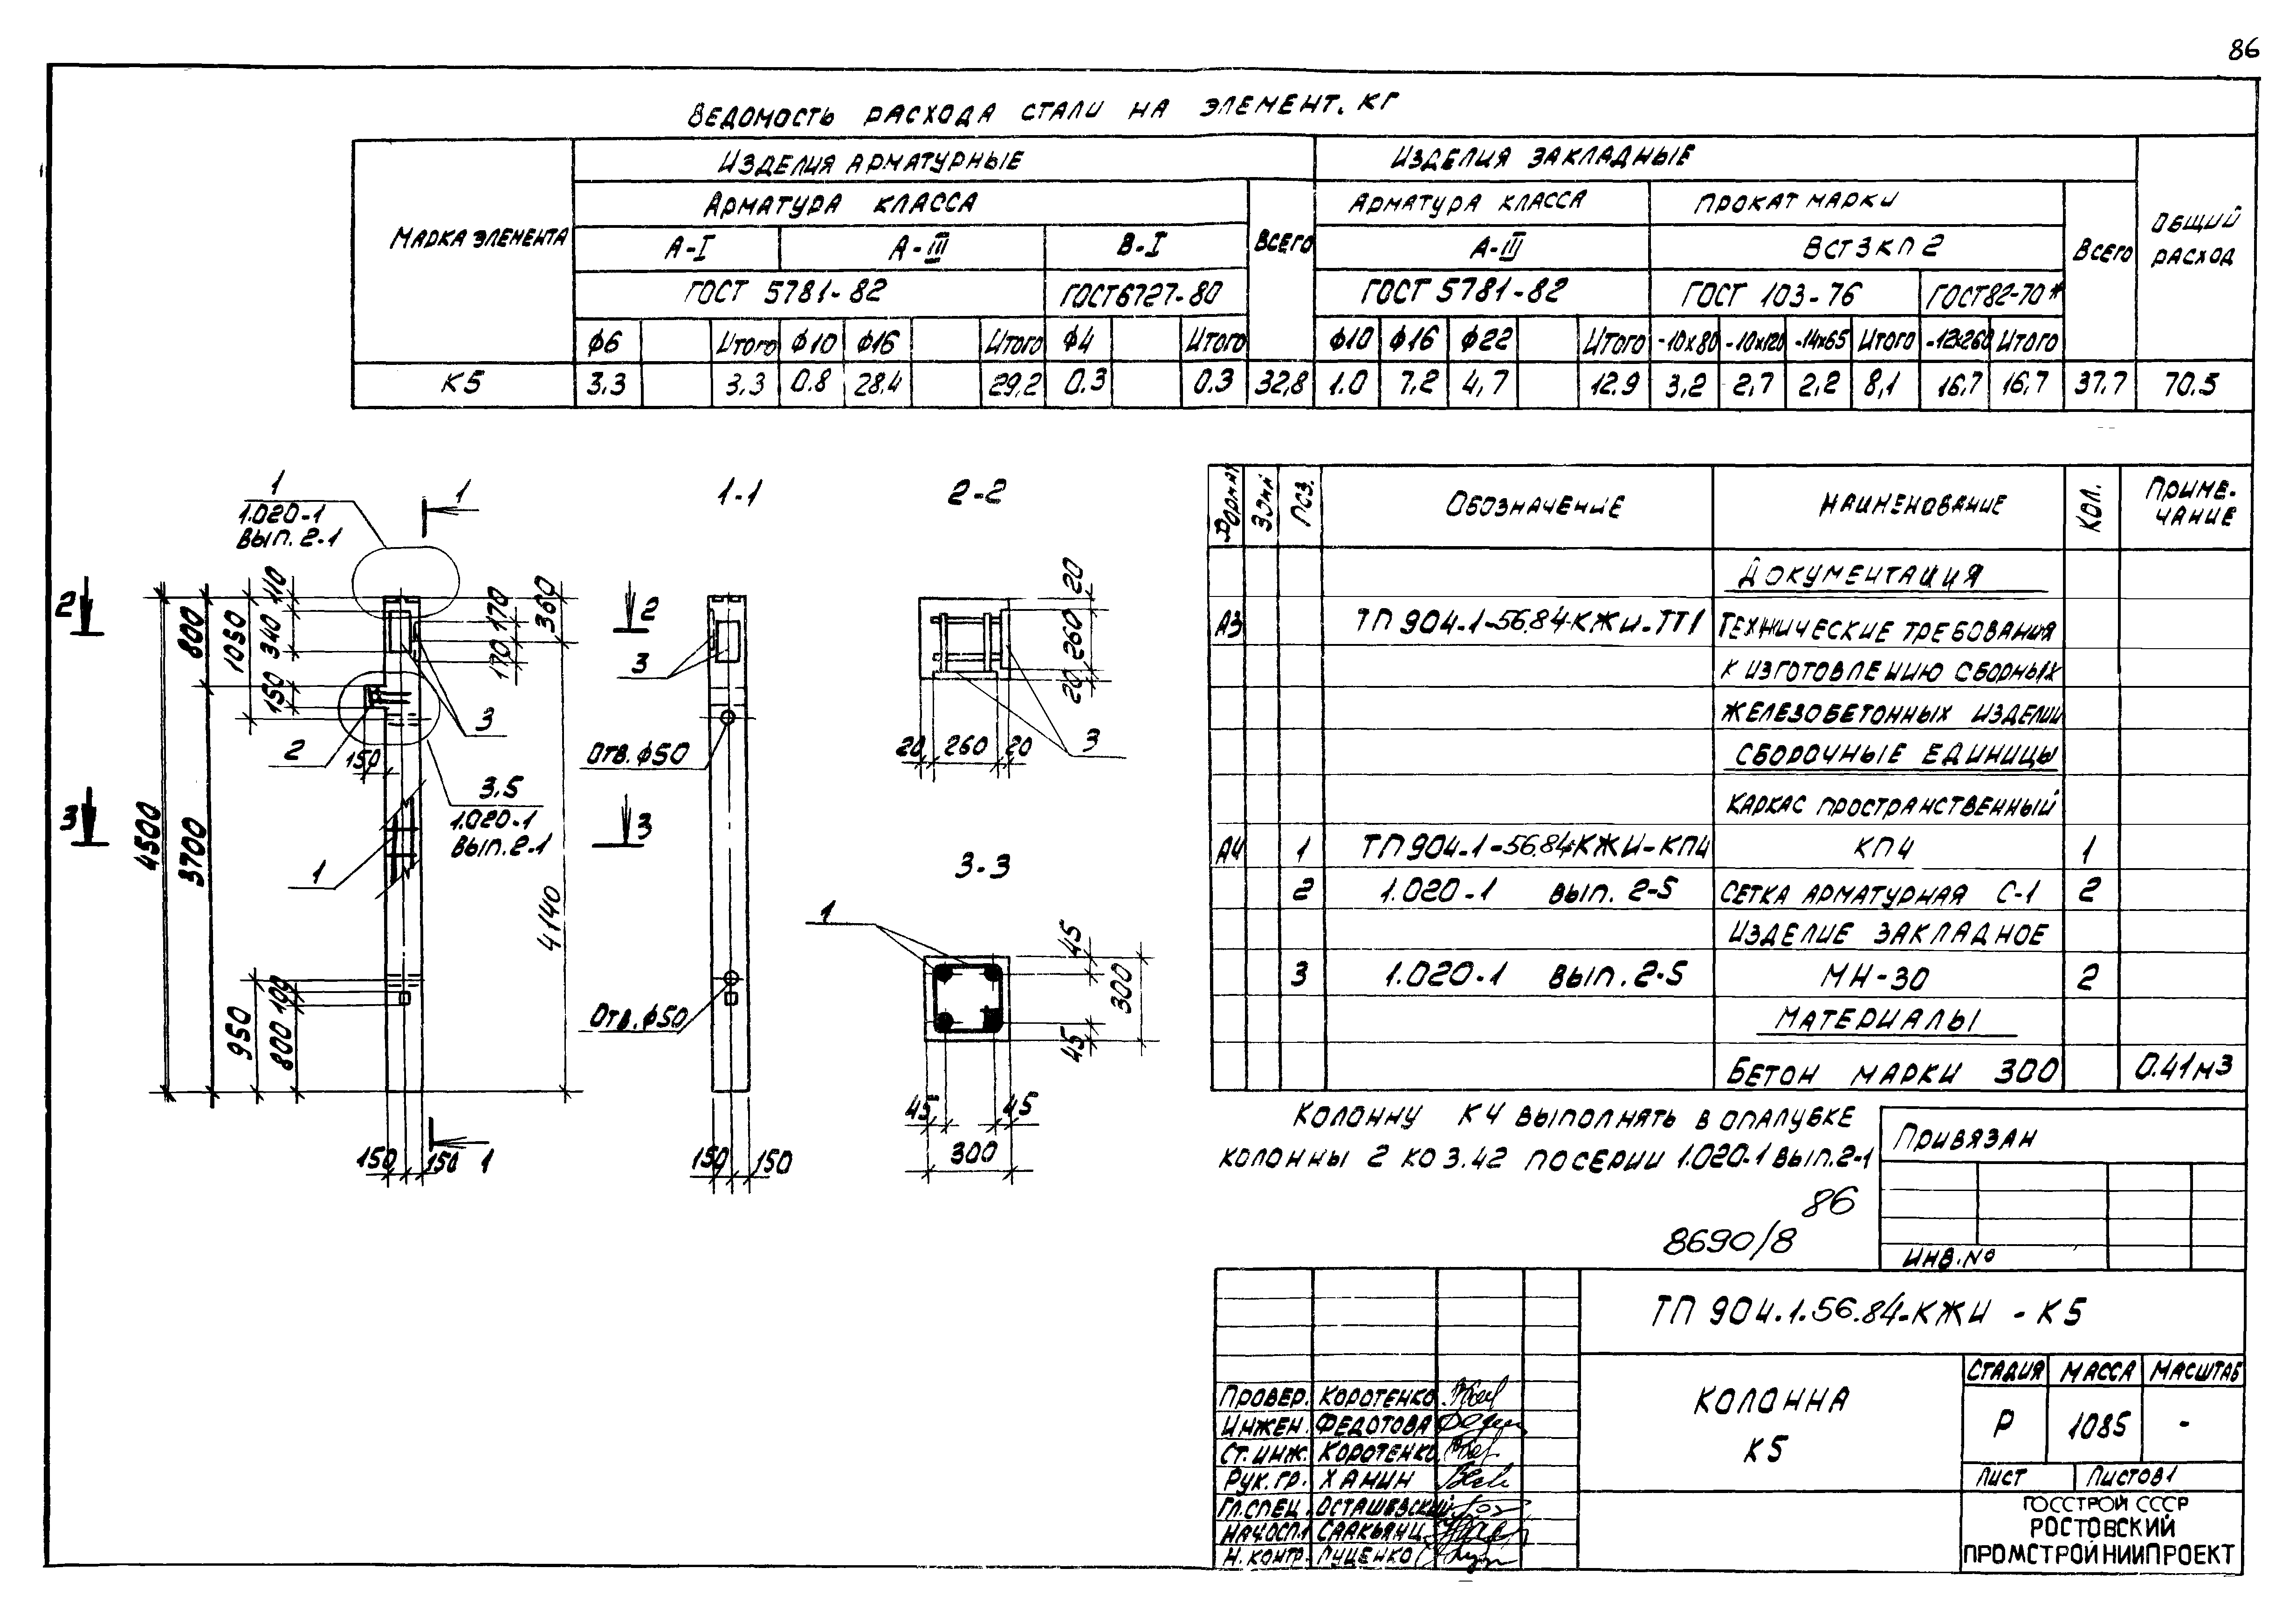 86
Ведомость расхода стали на элемент, кг
Марка элемента
Изделия арматурные
Изделия закладные
Общий расход
Арматура класса
Всего
Арматура класса
Прокат марки
Всего
А-I
А-III
В-I
А-III
ВСт3кп2
ГОСТ 5781-82
ГОСТ 6727-80
ГОСТ 5781-82
ГОСТ 103-76
ГОСТ 82-70*
ф6 Итого ф10 ф16 Итого ф4 Итого ф10 ф16 ф22 Итого -10х80 -10х120 -14х65 Итого -12х260 Итого
К5 3.3 3.3 0.8 28,4 29,2 0.3 0.3 32,8 1.0 7.2 4,7 12.9 3,2 2,7 2,2 8,1 16,7 16,7 37.7 70.5
1
1.020-1
Вып. 2-1
1
2
3
4500
3700
800
1030
110
340
150
170
170
360
4140
3
2
150
3.5
1.020-1
Вып. 2-1
1
950
800
100
150 150
1
1-1
2
3
3
Отв. ф50
Отв. ф50
150 150
2-2
20
260
20
20 260 20
3
3-3
1
45
300
45
45 45
300
Формат Зона Поз. Обозначение Наименование Кол. Примечание
Документация
А3 ТП 904-1-56.84-КЖИ-ТТ1 Технические требования
к изготовлению сборных
железобетонных изделий
Сборочные единицы
Каркас пространственный
А4 1 ТП 904-1-56.84-КЖИ-КП4 КП4 1
2 1.020-1 Вып. 2-5 Сетка арматурная С-1 2
Изделие закладное
3 1.020-1 Вып. 2-5 МН-30 2
Материалы
Бетон марки 300 0.41м3
Колонну К4 выполнять в опалубке
колонны 2 КО 3.42 по серии 1.020-1 Вып. 2-1
86
8690/8
Привязан
Инв. №
ТП 904.1.56.84-КЖИ - К5
Колонна
К5
Стадия Масса Масштаб
Р 1085 -
Лист Листов 1
Госстрой СССР
Ростовский
Промстройниипроект
Провер. Коротенко
Инжен. Федотова
Ст. инж. Коротенко
Рук. гр. Ханин
Гл. спец. Осташевский
Нач. осп.1 Саакьянц
Н. контр. Луценко